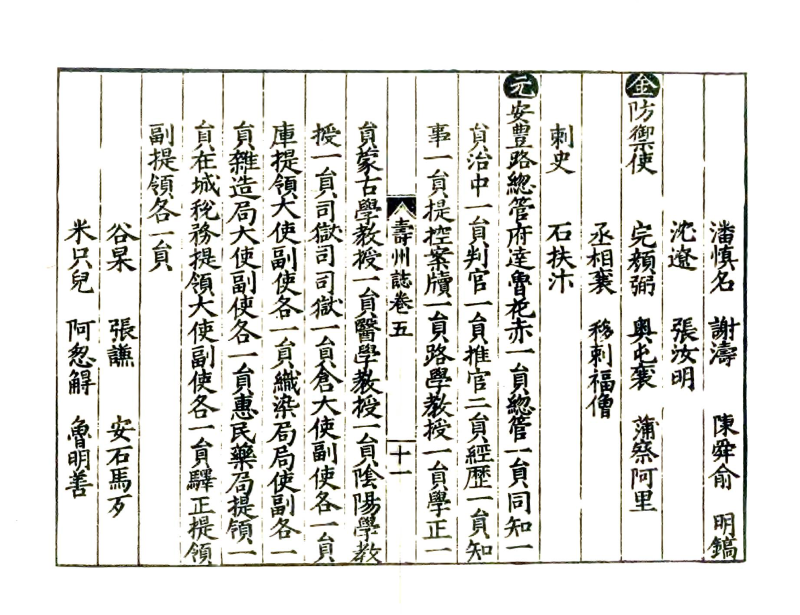 潘慎名 謝濤 陳舜俞 明鎬
沈遼 張汝明
金 防禦使 完顏弼 奧屯襄 蒲察阿里
丞相襄 移剌福僧
刺史 石抹汴
元 安豊路總管府達魯花赤一員總管一員同知一
員治中一員判官一員推官二員經歷一員知
事一員提控案牘一員路學教授一員學正一
壽州誌卷五 十一
員蒙古學教授一員醫學教授一員陰陽學教
授一員司獄司司獄一員倉大使副使各一員
庫提領大使副使各一員織染局局使副各一
員雜造局大使副使各一員惠民藥局提領一
員在城稅務提領大使副使各一員驛正提領
副提領各一員
谷杲 張謙 安石馬歹
米只兒 阿怱䚟 魯明善